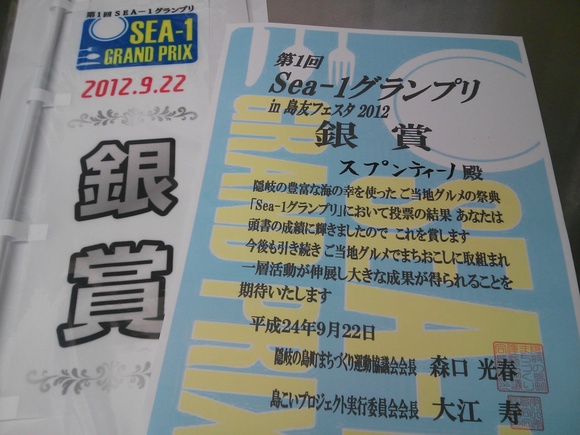 第1回SEA-1グランプリ
SEA-1
GRAND PRIX
2012.9.22
銀賞
第1回
Sea-1グランプリ
in 島友フェスタ 2012
銀賞
スプンティーノ殿
隠岐の豊富な海の幸を使った ご当地グルメの祭典
「Sea-1グランプリ」において投票の結果 あなたは
頭書の成績に輝きましたので これを賞します
今後も引き続き ご当地グルメでまちおこしに取組まれ
一層活動が伸展し大きな成果が得られることを
期待いたします
平成24年9月22日
隠岐の島町まちづくり運動協議会会長 森口 光春
島こいプロジェクト実行委員会会長 大江 寿
SEA-1
GRAND PRIX